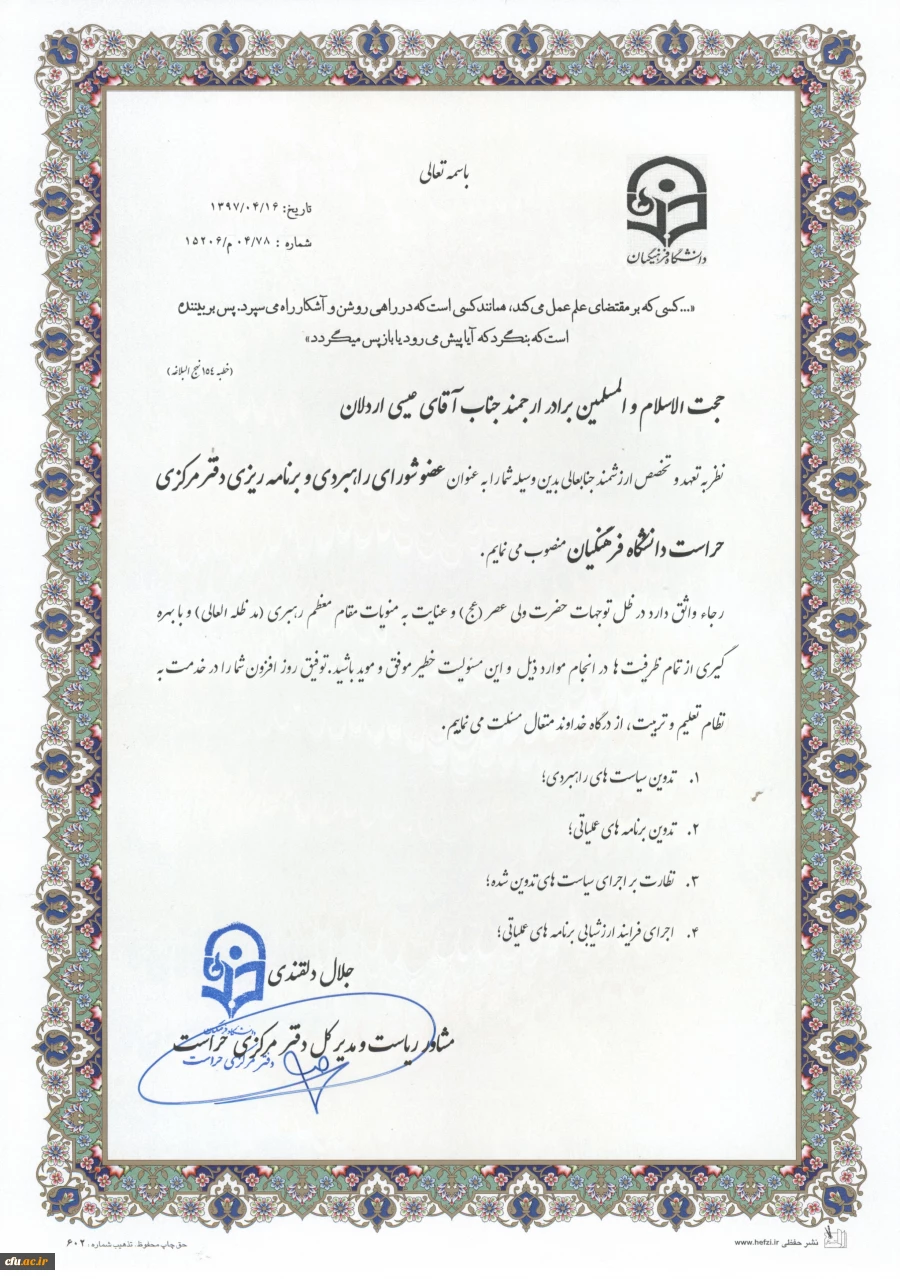 باسمه تعالی
دانشگاه فرهنگیان
تاریخ: ۱۳۹۷/۰۴/۱۶
شماره : ۰۴/۷۸ م/۱۵۲۰۶
«...کسی که بر مقتضای علم عمل می کند، همانند کسی است که در راهی روشن و آشکار راه می سپرد. پس بر بیننده
است که بنگرد که آیا پیش می رود یا باز پس میگردد»
(خطبه ۱۵۴ نهج البلاغه)
حجت الاسلام و المسلمین برادر ارجمند جناب آقای عیسی اردلان
نظر به تعهد و تخصص ارزشمند جنابعالی بدین وسیله شما را به عنوان عضو شورای راهبردی و برنامه ریزی دفتر مرکزی
حراست دانشگاه فرهنگیان منصوب می نمایم.
رجاء واثق دارد در ظل توجهات حضرت ولی عصر (عج) و عنایت به منویات مقام معظم رهبری (مد ظله العالی) و با بهره
گیری از تمام ظرفیت ها در انجام موارد ذیل و این مسئولیت خطیر موفق و موید باشید. توفیق روز افزون شما را در خدمت به
نظام تعلیم و تربیت، از درگاه خداوند متعال مسئلت می نمایم.
۱. تدوین سیاست های راهبردی؛
۲. تدوین برنامه های عملیاتی؛
۳. نظارت بر اجرای سیاست های تدوین شده؛
۴. اجرای فرایند ارزشیابی برنامه های عملیاتی؛
جلال دلقندی
مشاور ریاست و مدیر کل دفتر مرکزی حراست
دانشگاه فرهنگیان
دفتر مرکزی حراست
نشر حفظی www.hefzi.ir
حق چاپ محفوظ. تذهیب شماره: ۶۰۲
cfu.ac.ir